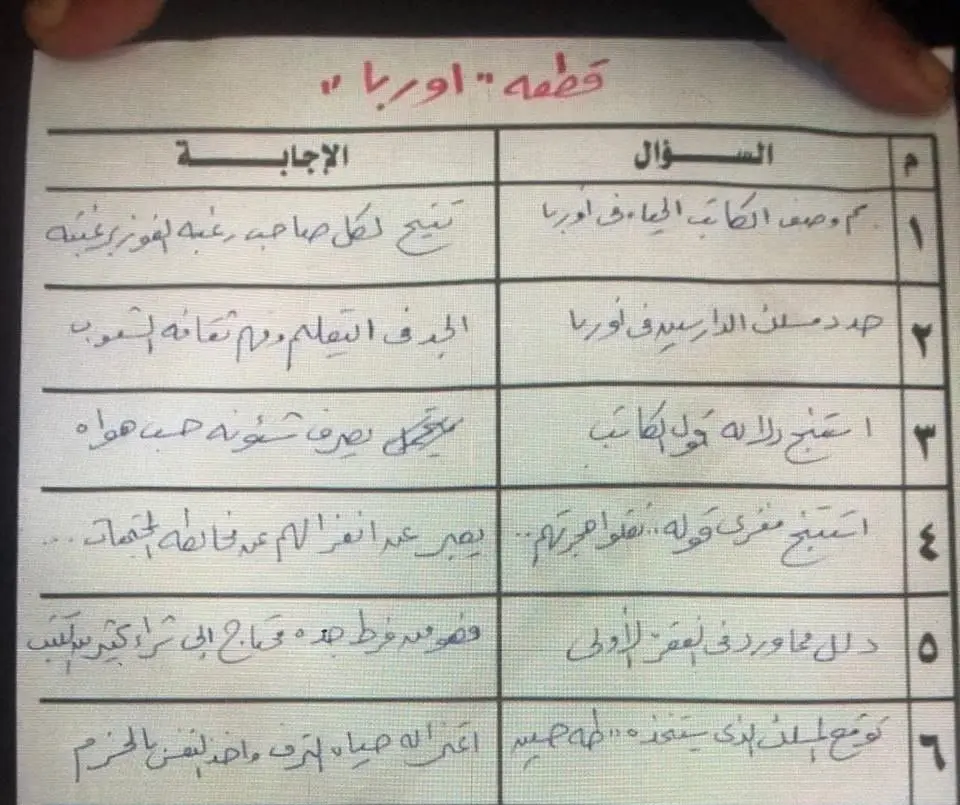 قطعه "اوربا"
م السؤال الإجابة
١ بم وصف الكاتب الحياه فى أوربا تتيح لكل صاحب رغبه الفوز برغبته
٢ حدد مسلك الدارسين فى أوربا الجد فى التعليم وفهم ثقافه الشعوب
٣ استنتج دلاله قول الكاتب يصرف شئونه حسب هواه
٤ استنتج مغزى قوله .. نقلوا حجرتهم .. يعبر عن انعزالهم عن مخالطه المجتمعات ...
٥ دلل مما ورد فى الفقرة الأولى فهو من فرط جده محتاج الى شراء كثير من الكتب
٦ توقع المسلك الذى يتخذه .. طه حسين اعتزاله حياه الترف واخذ النفس بالحزم